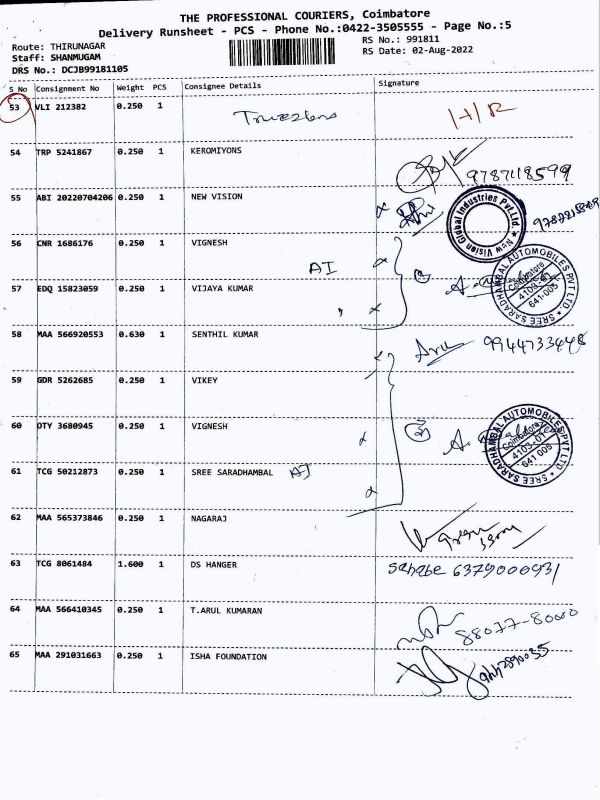 THE PROFESSIONAL COURIERS, Coimbatore
Delivery Runsheet - PCS - Phone No.:0422-3505555 - Page No.:5
Route: THIRUNAGAR
RS No.: 991811
Staff: SHANMUGAM
RS Date: 02-Aug-2022
DRS No.: DCJB99181105
S No Consignment No Weight PCS Consignee Details Signature
53 VLI 212382 0.250 1 H/R
54 TRP 5241867 0.250 1 KEROMIYONS
9787118599
55 ABI 20220704206 0.250 1 NEW VISION
New Vision Global Industries Pvt.Ltd.
56 CNR 1686176 0.250 1 VIGNESH
AI
57 EDQ 15823059 0.250 1 VIJAYA KUMAR
SREE SARADHAMBAL AUTOMOBILES PVT LTD
Coimbatore
641-005
58 MAA 566920553 0.630 1 SENTHIL KUMAR
9944733448
59 GDR 5262685 0.250 1 VIKEY
60 DTY 3680945 0.250 1 VIGNESH
SREE SARADHAMBAL AUTOMOBILES PVT LTD
Coimbatore
641 005
61 TCG 50212873 0.250 1 SREE SARADHAMBAL AI
62 MAA 565373846 0.250 1 NAGARAJ
63 TCG 8061484 1.600 1 DS HANGER
sahabe 6379000931
64 MAA 566410345 0.250 1 T.ARUL KUMARAN
88077-80000
65 MAA 291031663 0.250 1 ISHA FOUNDATION